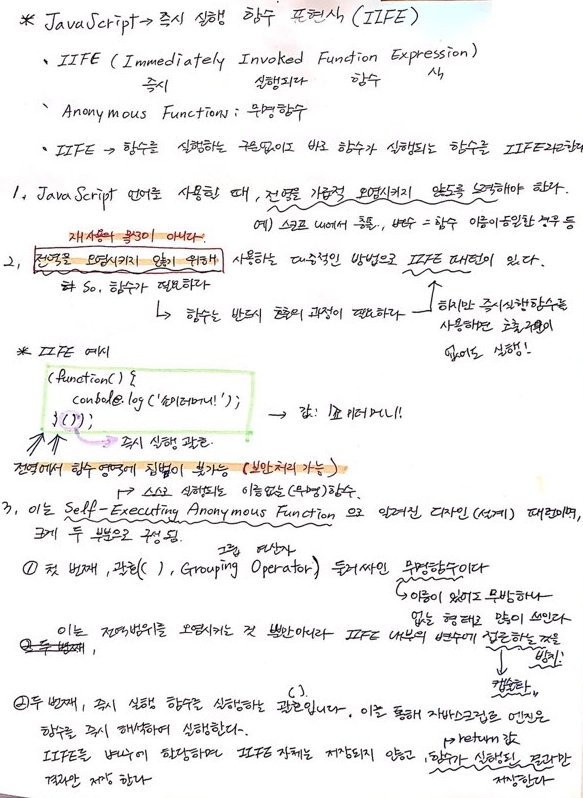 * JavaScript → 즉시 실행 함수 표현식 (IIFE)
· IIFE (Immediately Invoked Function Expression)
즉시 실행되다 함수 식
· Anonymous Functions : 무명함수
· IIFE → 함수를 실행하는 구문없이도 바로 함수가 실행되는 함수를 IIFE라고한다
1. JavaScript 언어를 사용할 때, 전역을 가급적 오염시키지 않도록 노력해야 한다.
예) 스코프 내에서 충돌, 변수 = 함수 이름이 동일한 경우 등
재사용의 목적이 아니다.
2. 전역을 오염시키지 않기 위해 사용하는 대중적인 방법으로 IIFE 패턴이 있다.
So, 함수가 필요하다
↳ 함수는 반드시 호출의 과정이 필요하다
하지만 즉시실행함수를
사용하면 호출 구문이
없어도 실행!
* IIFE 예시
(function() {
console.log('쇼미더머니!');
}());
→ 값: 쇼미더머니!
→ 즉시 실행 괄호
전역에서 함수 영역에 침범이 불가능 (보안처리 가능)
↱ 스스로 실행되는 이름없는(무명)함수.
3. 이는 Self-Executing Anonymous Function 으로 알려진 디자인(설계) 패턴이며,
크게 두 부분으로 구성됨.
그룹 연산자
① 첫 번째, 괄호( ( ), Grouping Operator) 둘러싸인 무명함수이다
↳ 이름이 있어도 무방하나
없는 형태로 많이 쓰인다
이는 전역범위를 오염시키는 것 뿐만아니라 IIFE 내부의 변수에 접근하는 것을
② 두 번째,
방지!
↓
캡슐화
( ).
② 두 번째, 즉시 실행 함수를 실행하는 괄호입니다. 이를 통해 자바스크립트 엔진은
함수를 즉시 해석하여 실행한다.
↱ return 값
IIFE를 변수에 할당하면 IIFE 자체는 저장되지 않고, 함수가 실행된 결과만
결과만 저장 한다
저장한다